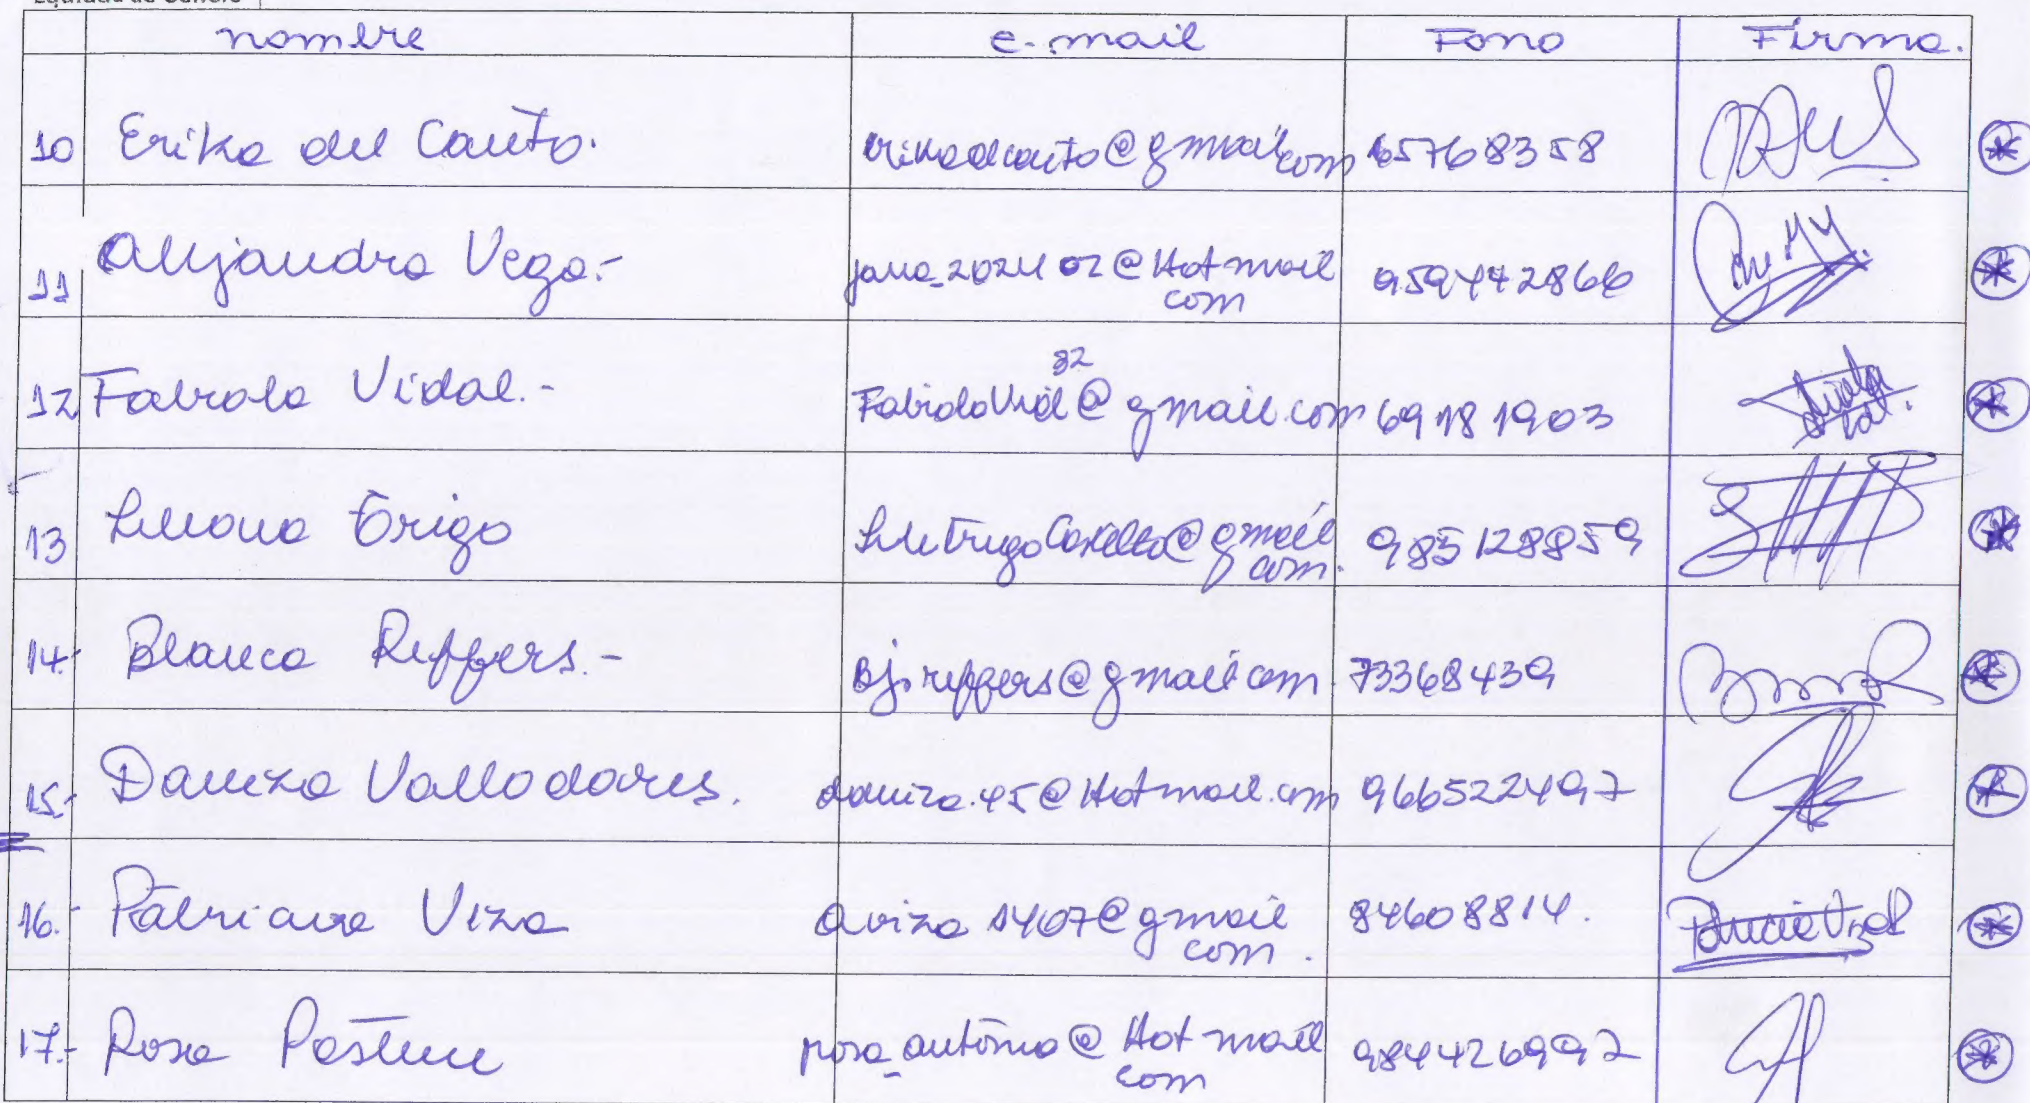 nombre e-mail Fono Firma.
10 Erika del Canto. erikadcanto@gmail.com 65768358
11 Alejandra Vega.- jana_202402@Hotmail.com 959442866
12 Fabiola Vidal.- FabiolaVidal82@gmail.com 69181903
13 Liliana Trigo LiliTrigoCastillo@gmail.com. 985128859
14.- Blanca Reffers.- Bj.reffers@gmail.com 73368439
15.- Daniza Valladares. daniza.45@Hotmail.com 966522497
16.- Patricia Viza aviza1407@gmail.com. 84608814. Patricia Viza
17.- Rosa Pastene rosa_antonia@Hotmail.com 984426992